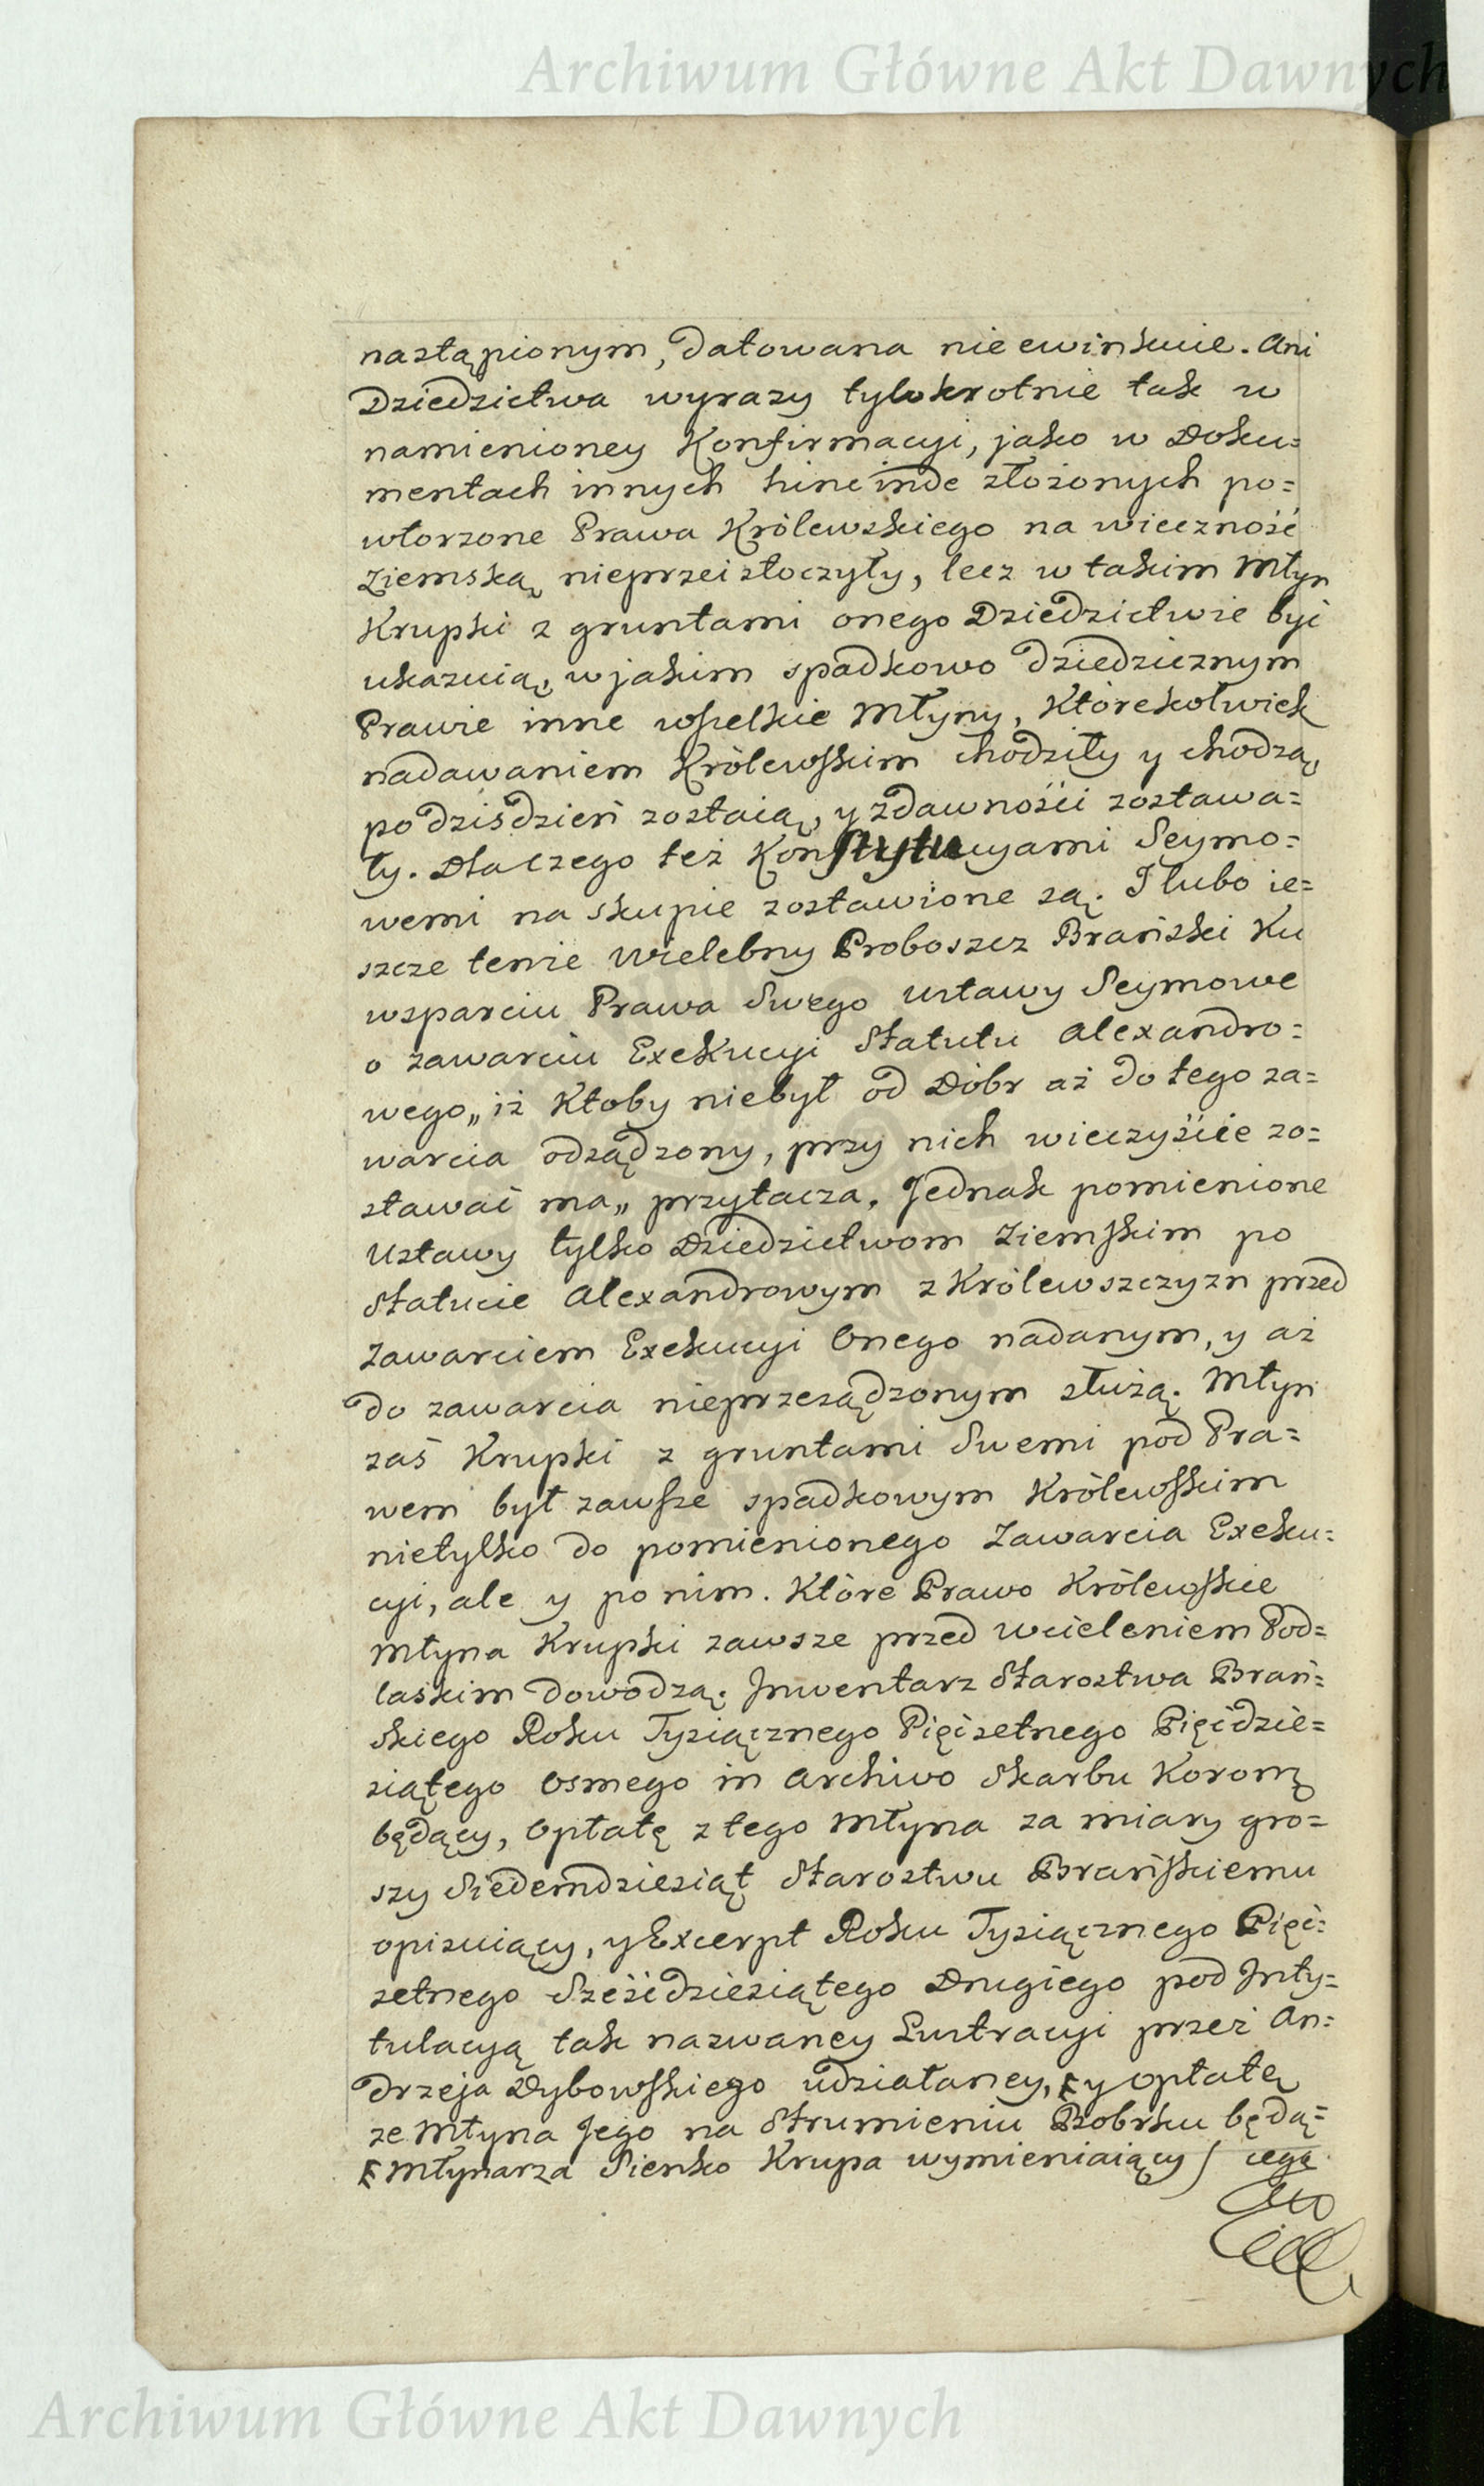 Archiwum Główne Akt Dawnych
nastąpionym, datowana nieewinkuie. Ani
Dziedzictwa wyrazy tylokrotnie tak w
namienioney Konfirmacyi, jako w Doku=
mentach innych hinc inde złożonych po=
wtorzone Prawa Królewskiego na wieczność
Ziemską nieprzeistoczyły, lecz w takim Młyn
Krupki z gruntami onego Dziedzictwie być
ukazuią, w jakim spadkowo dziedzicznym
Prawie inne wszelkie Młyny, Którekolwiek
nadawaniem Królewskim chodziły y chodzą
po dziśdzień zostaią, y zdawności zostawa=
ły. Dlaczego też Konstytucyami Seymo=
wemi na skupie zostawione są. I lubo ie=
szcze tenże Wielebny Proboszcz Brański Ku
wsparciu Prawa Swego Ustawy Seymowe
o zawarciu Exekucyi Statutu Alexandro=
wego „iż Ktoby niebył od Dóbr aż do tego za=
warcia odsądzony, przy nich wieczyście zo=
stawać ma„ przytacza. Jednak pomienione
Ustawy tylko Dziedzictwom Ziemskim po
Statucie Alexandrowym z Królewszczyzn przed
Zawarciem Exekucyi Onego nadanym, y aż
do zawarcia nieprzesądzonym służą. Młyn
zaś Krupki z gruntami Swemi pod Pra=
wem był zawsze spadkowym Królewskim
nietylko do pomienionego Zawarcia Exeku=
cyi, ale y po nim. Które Prawo Królewskie
Młyna Krupki zawsze przed Wcieleniem Pod=
laskim dowodzą. Inwentarz Starostwa Brań=
skiego Roku Tysiącznego Pięćsetnego Pięćdzie=
siątego Osmego in Archivo Skarbu Koronn
będący, Opłatę z tego Młyna za miary gro=
szy Siedemdziesiąt Starostwu Brańskiemu
opisuiący, y Excerpt Roku Tysiącznego Pięć=
setnego Sześćdziesiątego Drugiego pod Inty=
tulacyą tak nazwaney Lustracyi przez An=
drzeja Dybowskiego udziałaney, ꜰ y opłatę
ze Młyna Jego na Strumieniu Bobrku będą=
ꜰ Młynarza Sieńko Krupa wymieniaiący / cego
Archiwum Główne Akt Dawnych